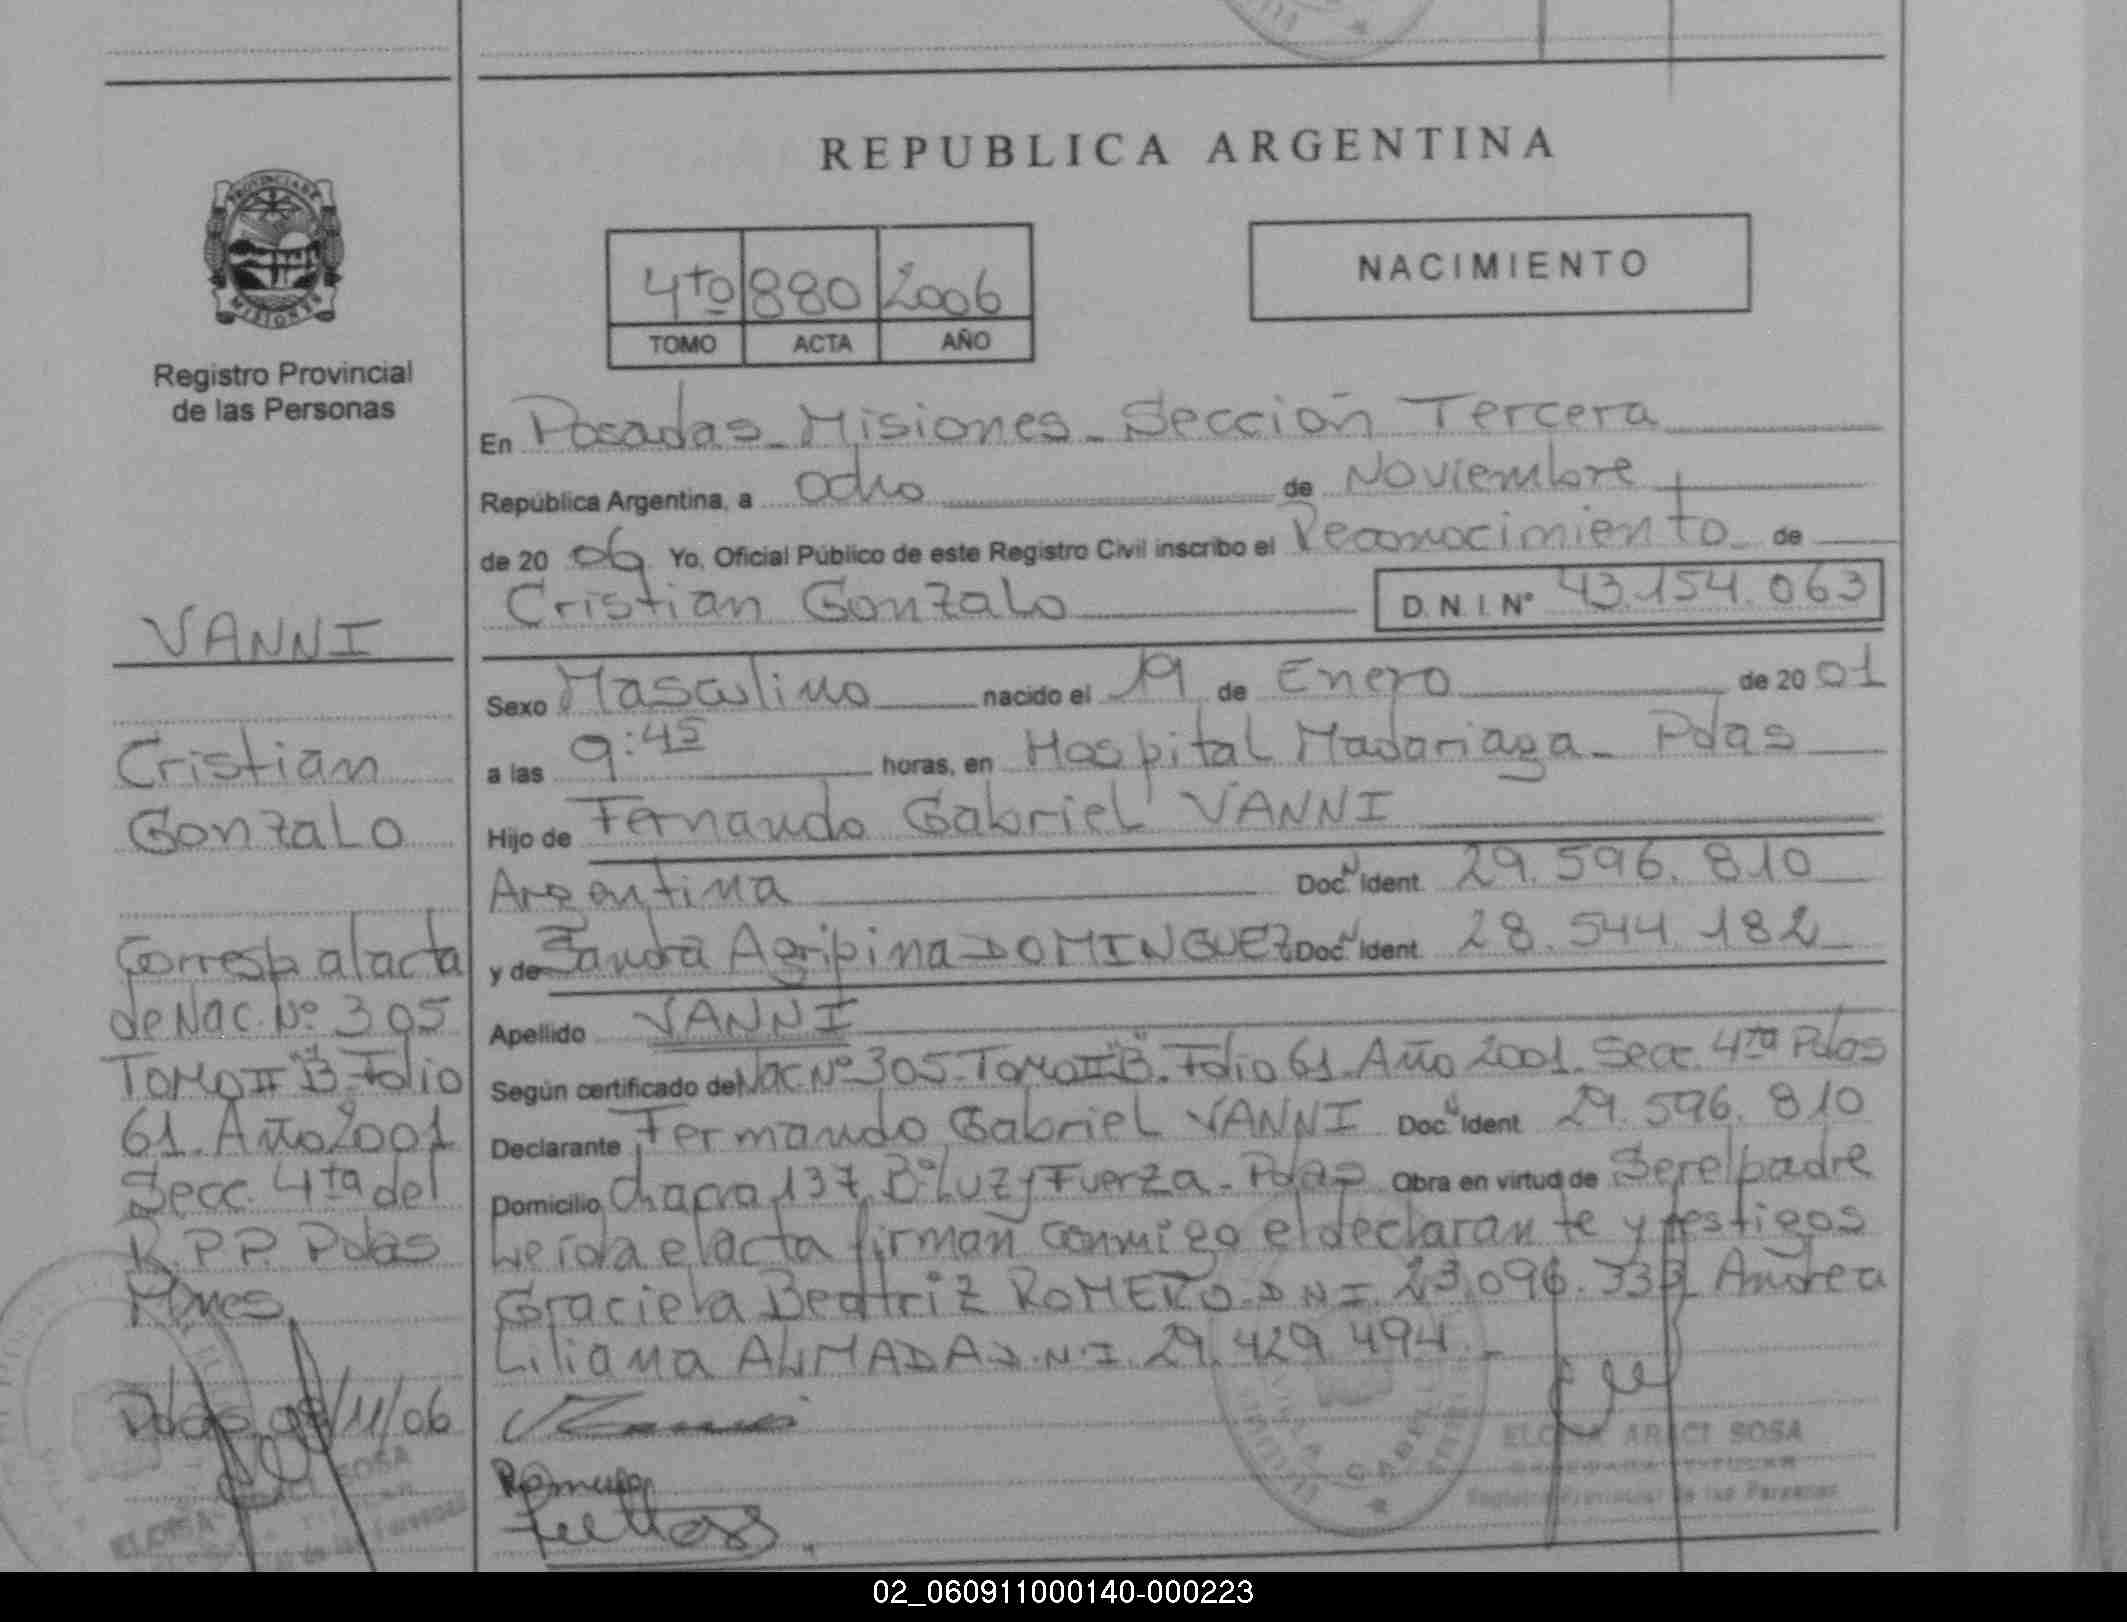 REPUBLICA ARGENTINA
PROVINCIA DE
MISIONES
Registro Provincial
de las Personas
4to 880 2006
TOMO ACTA AÑO
NACIMIENTO
En Posadas - Misiones - Sección Tercera
República Argentina, a ocho de Noviembre
de 20 06 Yo, Oficial Público de este Registro Civil inscribo el Reconocimiento de
Cristian Gonzalo D.N.I. Nº 43.154.063
Sexo Masculino nacido el 19 de Enero de 20 01
a las 9:45 horas, en Hospital Madariaga - Pdas
Hijo de Fernando Gabriel VANNI
Argentina Doc. N Ident. 29.596.810
y de Sandra Agripina DOMINGUEZ Doc. N Ident. 28.544.182
Apellido VANNI
Según certificado de Nac. Nº 305 - Tomo II "B". Folio 61. Año 2001. Secc. 4ta Pdas
Declarante Fernando Gabriel VANNI Doc. N Ident 29.596.810
Domicilio Chacra 137 Bº Luz y Fuerza - Pdas Obra en virtud de Ser el padre
Leida el acta firman conmigo el declarante y testigos
Graciela Beatriz ROMERO - D.N.I. 23.096.333 Andrea
Liliana ALMADA D.N.I. 29.429.494 -
VANNI
Cristian
Gonzalo
Corresp al acta
de Nac. Nº 305
Tomo II "B" Folio
61. Año 2001
Secc. 4ta del
R.P.P. Pdas
Mnes.
Pdas, 08/11/06
ELOISA ARACI SOSA
Registro Provincial de las Personas
ELOISA ARACI SOSA
02_060911000140-000223